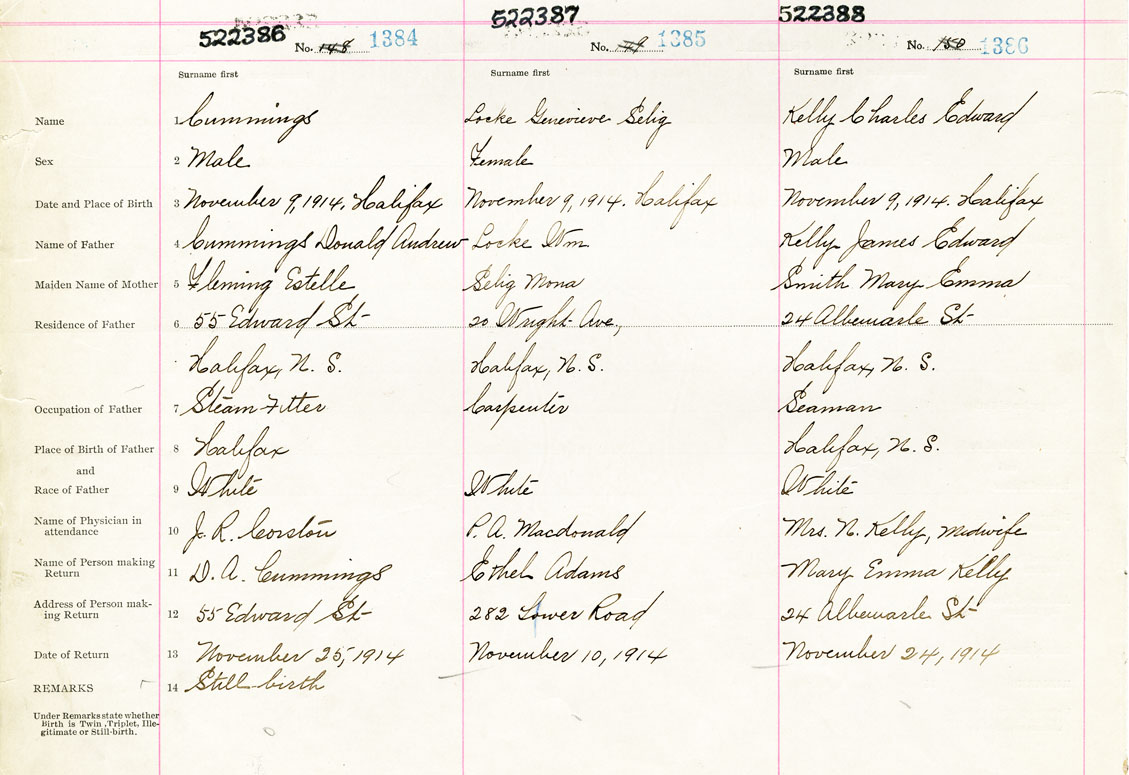 522386 522387 522388
No. 148 1384 No. 149 1385 No. 150 1386
Surname first Surname first Surname first
Name 1 Cummings Locke Genevieve Selig Kelly Charles Edward
Sex 2 Male Female Male
Date and Place of Birth 3 November 9, 1914. Halifax November 9, 1914. Halifax November 9, 1914. Halifax
Name of Father 4 Cummings Donald Andrew Locke Wm Kelly James Edward
Maiden Name of Mother 5 Fleming Estelle Selig Mona Smith Mary Emma
Residence of Father 6 55 Edward St 20 Wright Ave., 24 Albemarle St
Halifax, N. S. Halifax, N. S. Halifax, N. S.
Occupation of Father 7 Steam Fitter Carpenter Seaman
Place of Birth of Father 8 Halifax Halifax, N. S.
and
Race of Father 9 White White White
Name of Physician in
attendance 10 J. R. Corston P. A. Macdonald Mrs. N. Kelly, midwife
Name of Person making
Return 11 D. A. Cummings Ethel Adams Mary Emma Kelly
Address of Person mak-
ing Return 12 55 Edward St 282 Lower Road 24 Albemarle St
Date of Return 13 November 25, 1914 November 10, 1914 November 24, 1914
REMARKS 14 Still-birth
Under Remarks state whether
Birth is Twin, Triplet, Ille-
gitimate or Still-birth.